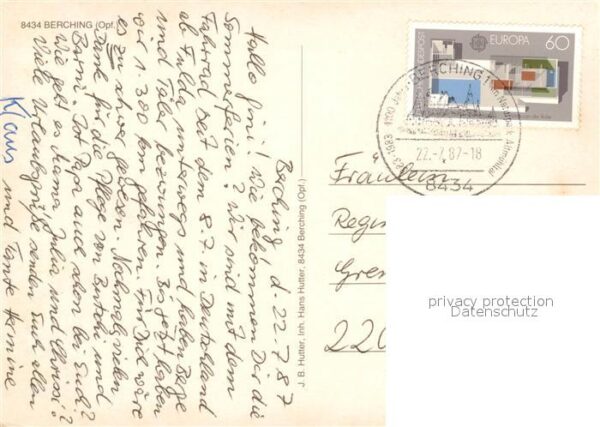 8434 BERCHING (Opf.)
Berching, d. 22.7.87
Hallo Gini! Wie bekommen Dir die
Sommerferien? Wir sind mit dem
Fahrrad seit dem 8.7. in Deutschland
ab Fulda unterwegs und haben Berge
und Täler bezwungen. Bis jetzt haben
wir 1.380 km gefahren. Für Dich wäre
es zu schwer gewesen. Nochmals vielen
Dank für die Pflege von und
Ist Papa auch oben bei Euch?
Wie geht es Mama, Julia und Chrissi?
Viele Urlaubsgrüße senden Euch allen
Klaus und Tante Hermine
J. B. Hutter, Inh. Hans Hutter, 8434 Berching (Opf.)
EUROPA 60
BUNDESPOST
1100 Jahre BERCHING
Naturpark Altmühltal
883-1983
22.-7.87-18
8434
Fräulein
Regin
Gre
220
privacy protection
Datenschutz